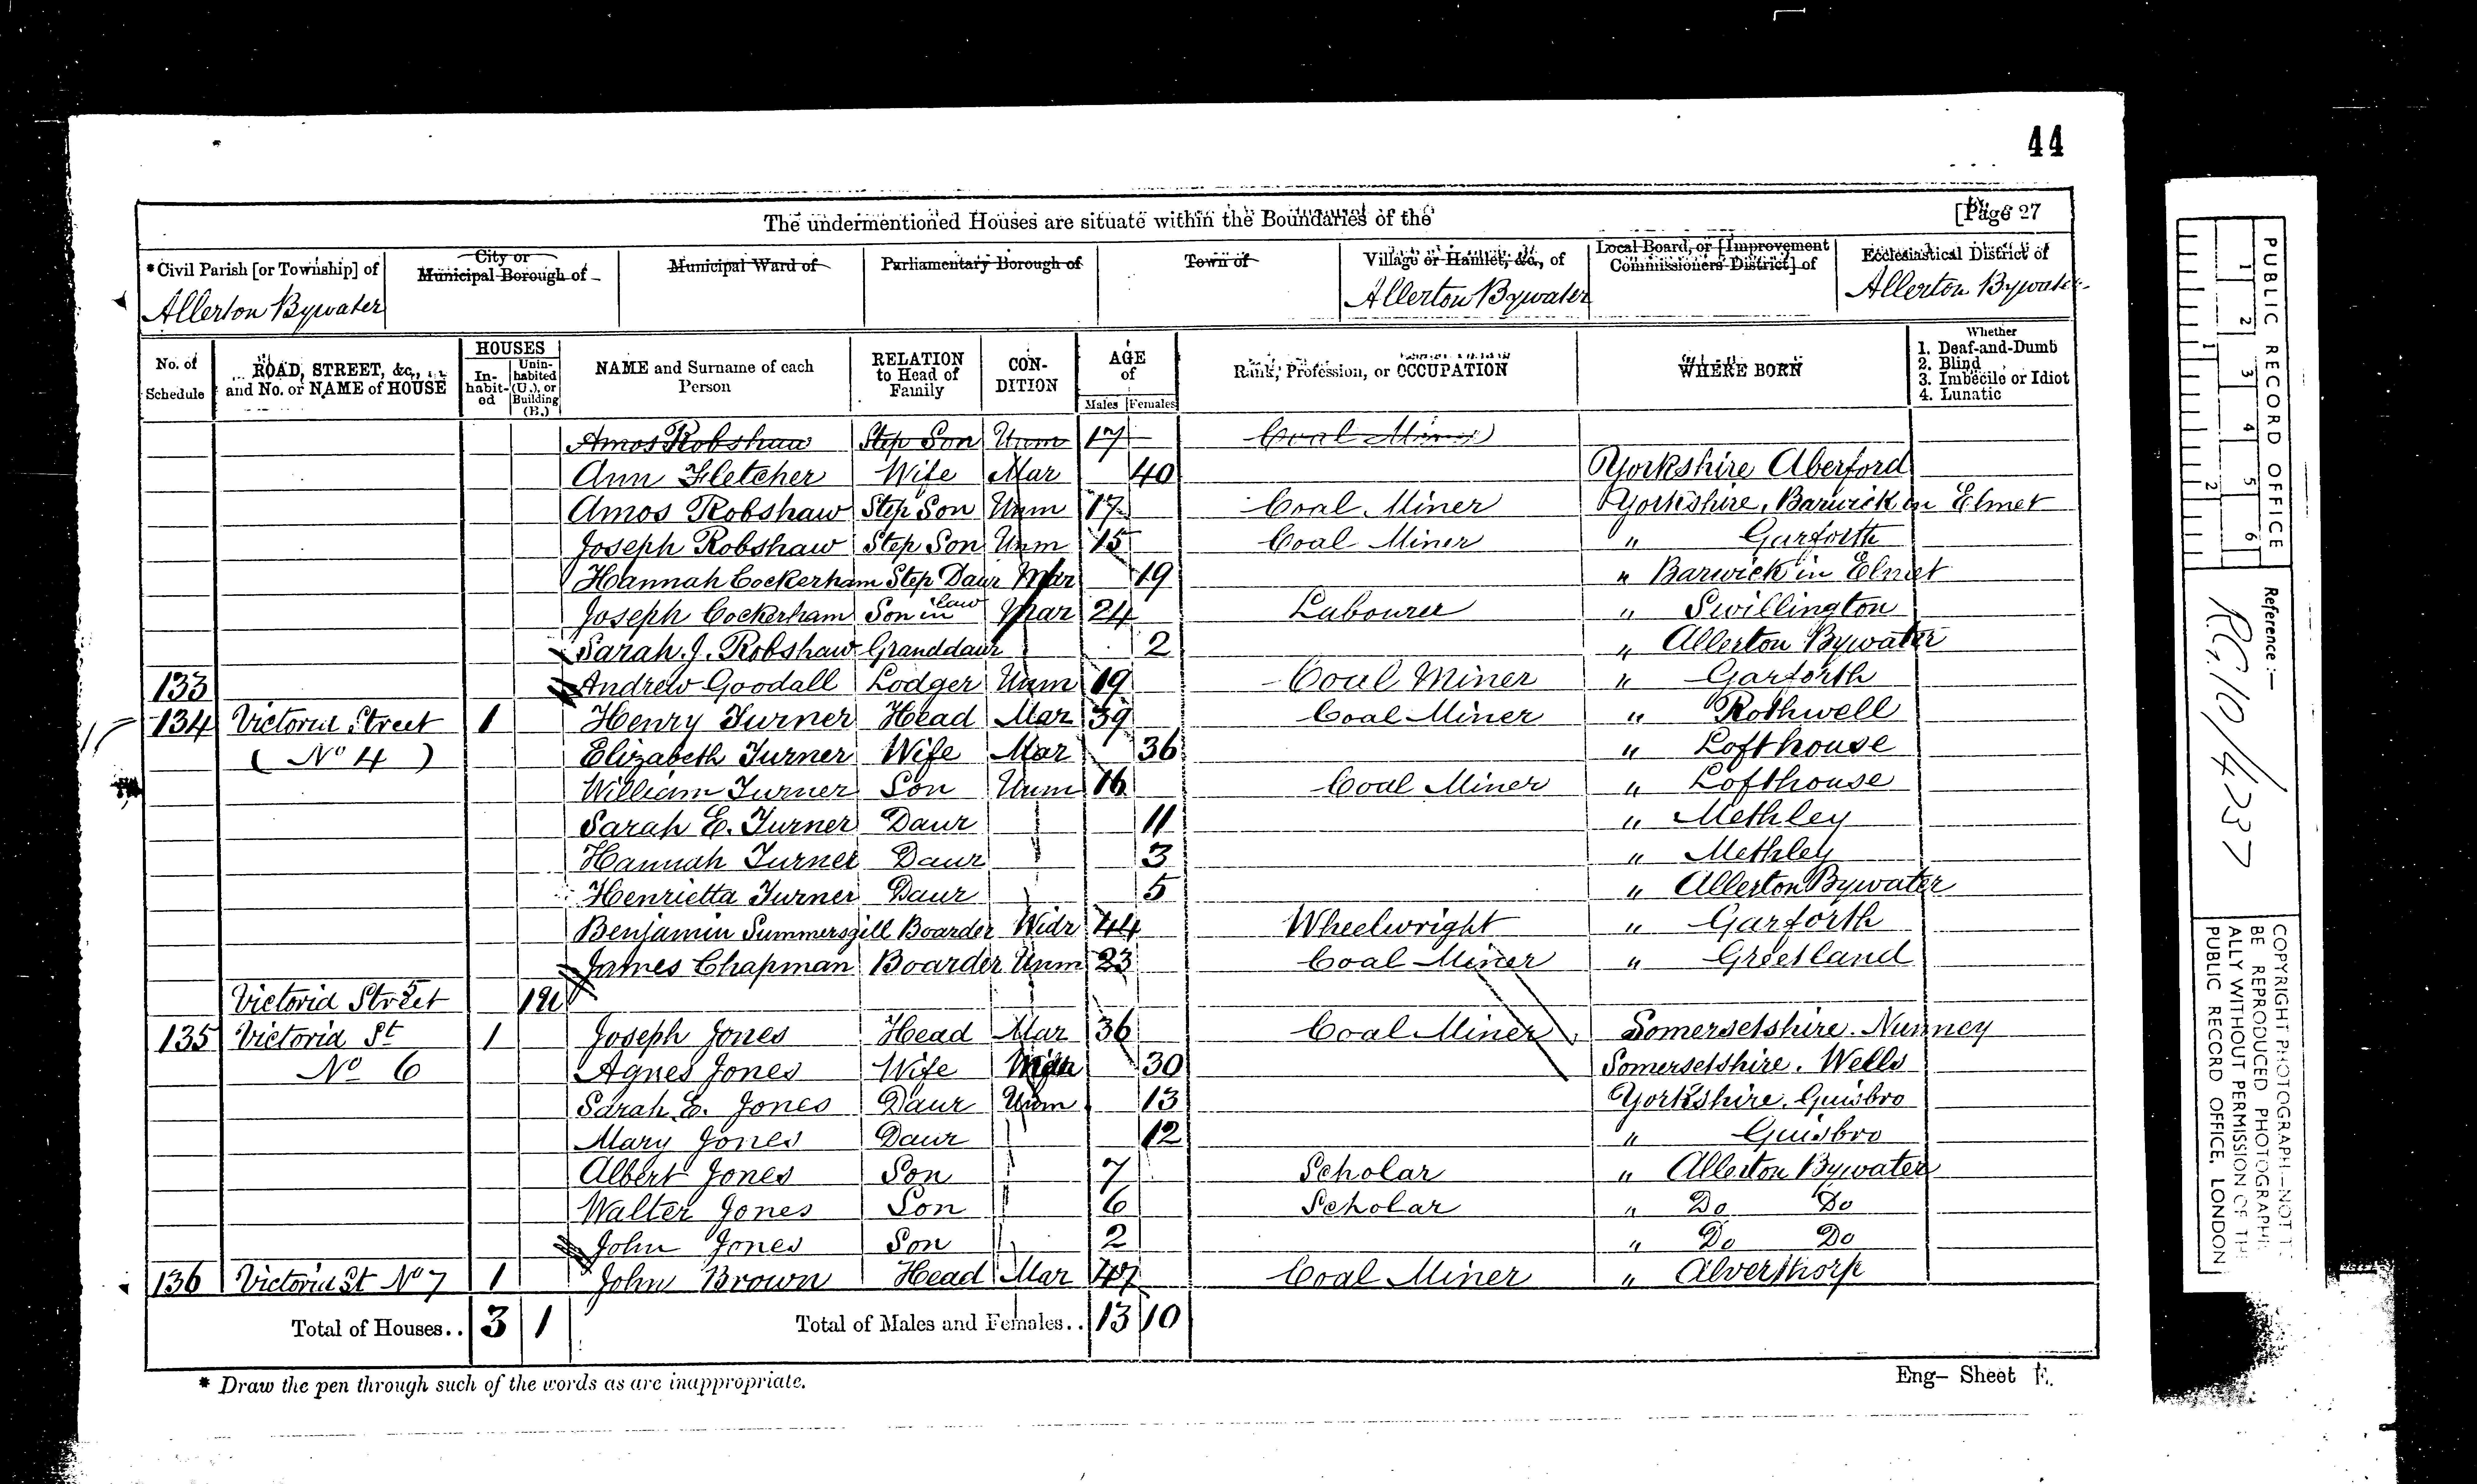 44
The undermentioned Houses are situate within the Boundaries of the [Page 27
*Civil Parish [or Township] of City or Municipal Borough of Municipal Ward of Parliamentary Borough of Town of Village or Hamlet, &c., of Local Board, or [Improvement Commissioners District] of Ecclesiastical District of
Allerton Bywater Allerton Bywater Allerton Bywater
No. of Schedule ROAD, STREET, &c., and No. or NAME of HOUSE HOUSES In-habit-ed Unin-habited (U.), or Building (B.) NAME and Surname of each Person RELATION to Head of Family CON-DITION AGE of Males Females Rank, Profession, or OCCUPATION WHERE BORN Whether 1. Deaf-and-Dumb 2. Blind 3. Imbecile or Idiot 4. Lunatic
Amos Robshaw Step Son Unm 17 Coal Miner
Ann Fletcher Wife Mar 40 Yorkshire Aberford
Amos Robshaw Step Son Unm 17 Coal Miner Yorkshire, Barwick in Elmet
Joseph Robshaw Step Son Unm 15 Coal Miner " Garforth
Hannah Cockerham Step Daur Mar 19 " Barwick in Elmet
Joseph Cockerham Son in law Mar 24 Labourer " Swillington
Sarah. J. Robshaw Granddaur 2 " Allerton Bywater
133 Andrew Goodall Lodger Unm 19 Coal Miner " Garforth
134 Victoria Street 1 Henry Turner Head Mar 39 Coal Miner " Rothwell
( No 4 ) Elizabeth Turner Wife Mar 36 " Lofthouse
William Turner Son Unm 16 Coal Miner " Lofthouse
Sarah E. Turner Daur 11 " Methley
Hannah Turner Daur 3 " Methley
Henrietta Turner Daur 5 " Allerton Bywater
Benjamin Summersgill Boarder Widr 44 Wheelwright " Garforth
James Chapman Boarder Unm 23 Coal Miner " Greetland
Victoria Street 5 1
135 Victoria St 1 Joseph Jones Head Mar 36 Coal Miner Somersetshire. Nunney
No 6 Agnes Jones Wife 30 Somersetshire. Wells
Sarah E. Jones Daur Unm 13 Yorkshire. Guisbro
Mary Jones Daur 12 " Guisbro
Albert Jones Son 7 Scholar " Allerton Bywater
Walter Jones Son 6 Scholar " Do Do
John Jones Son 2 " Do Do
136 Victoria St No 7 1 John Brown Head Mar 47 Coal Miner " Alverthorp
Total of Houses.. 3 1 Total of Males and Females.. 13 10
* Draw the pen through such of the words as are inappropriate.
Eng- Sheet E.
PUBLIC RECORD OFFICE
1 2 3 4 5 6
1 2
Reference:-
RG.10/4237
COPYRIGHT PHOTOGRAPH-NOT TO BE REPRODUCED PHOTOGRAPHICALLY WITHOUT PERMISSION OF THE PUBLIC RECORD OFFICE, LONDON